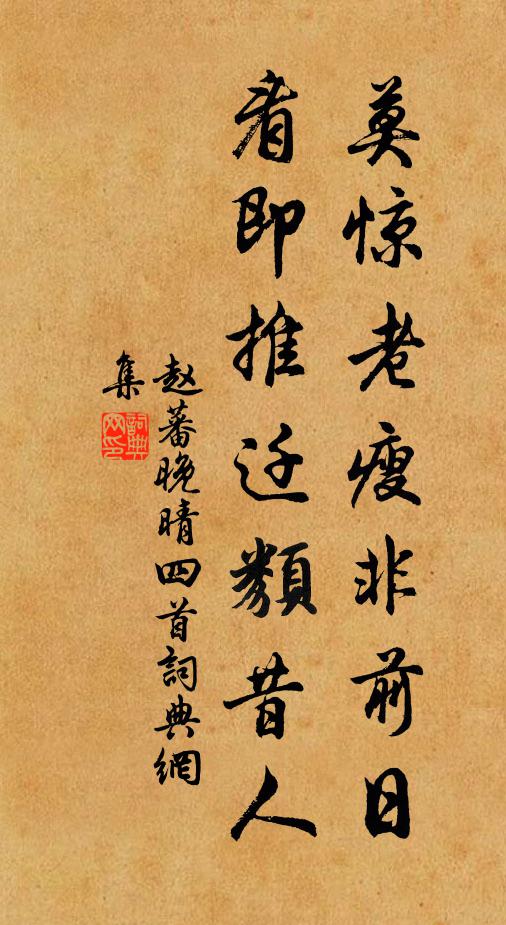 莫惊老瘦非前日
看即推迁類昔人
赵蕃晚晴四首詞典網
集
詞典
网印